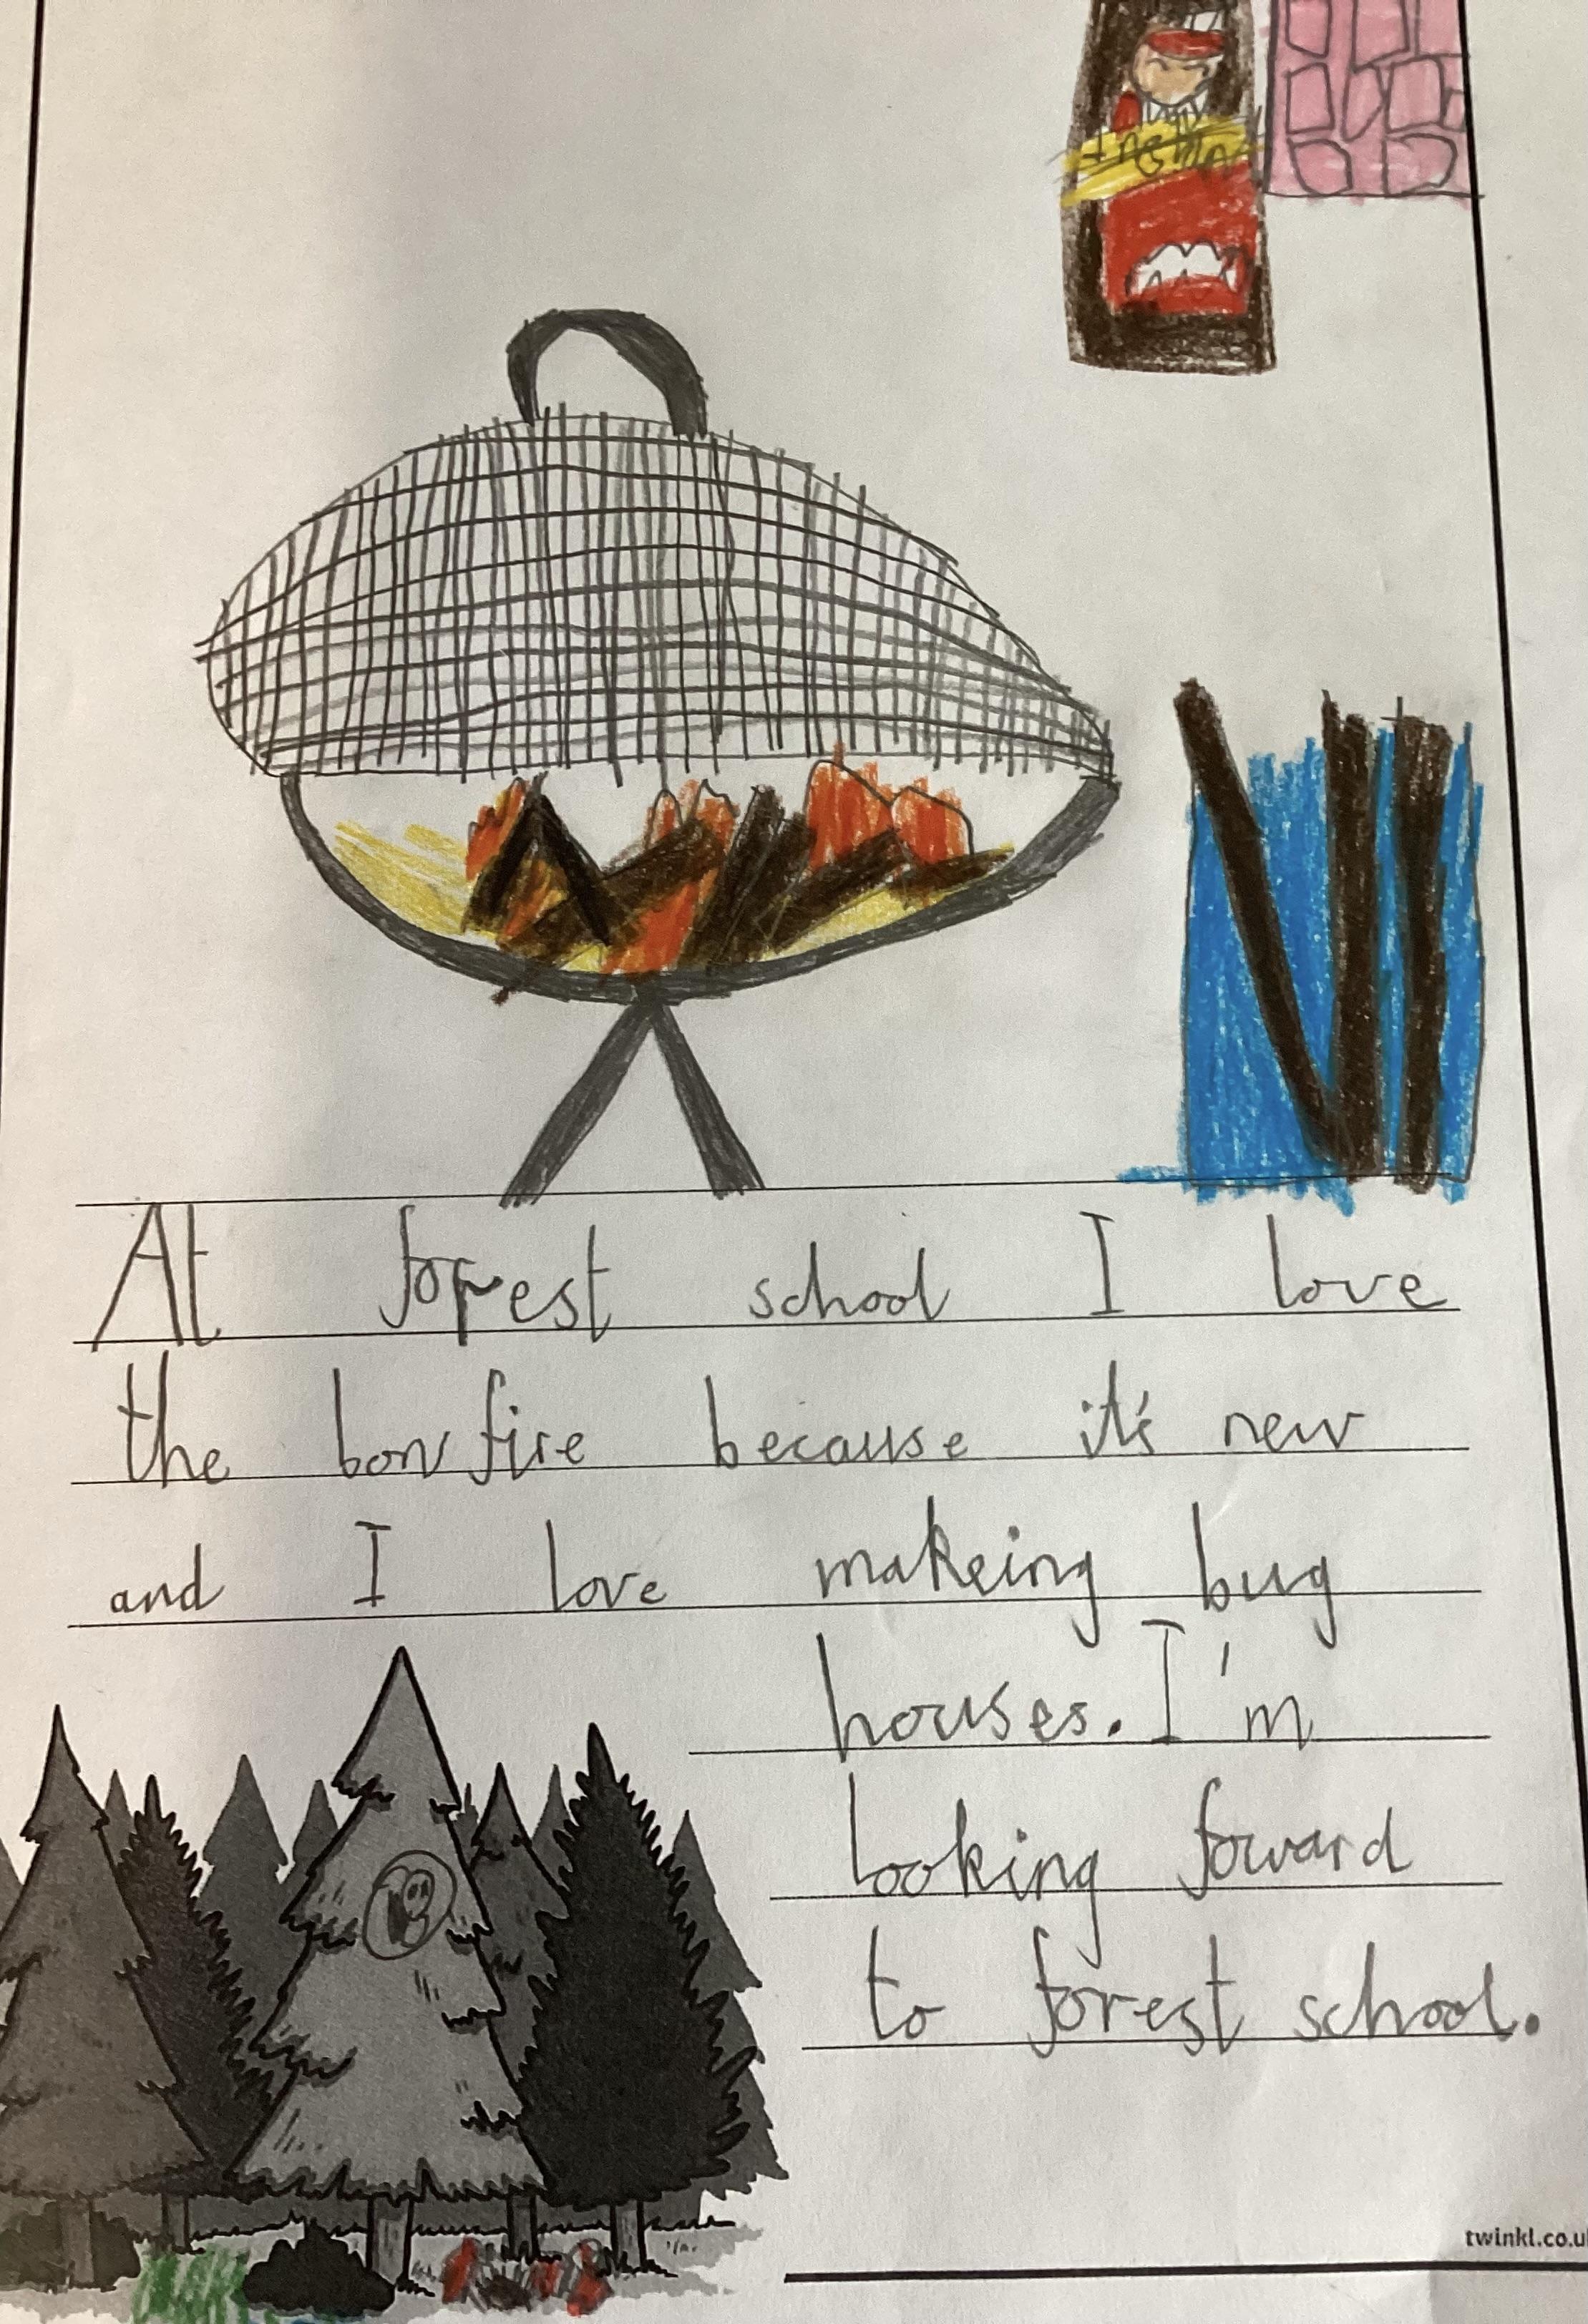 At forest school I love
the bonfire because it's new
and I love makeing bug
houses. I'm
looking forward
to forest school.
twinkl.co.u